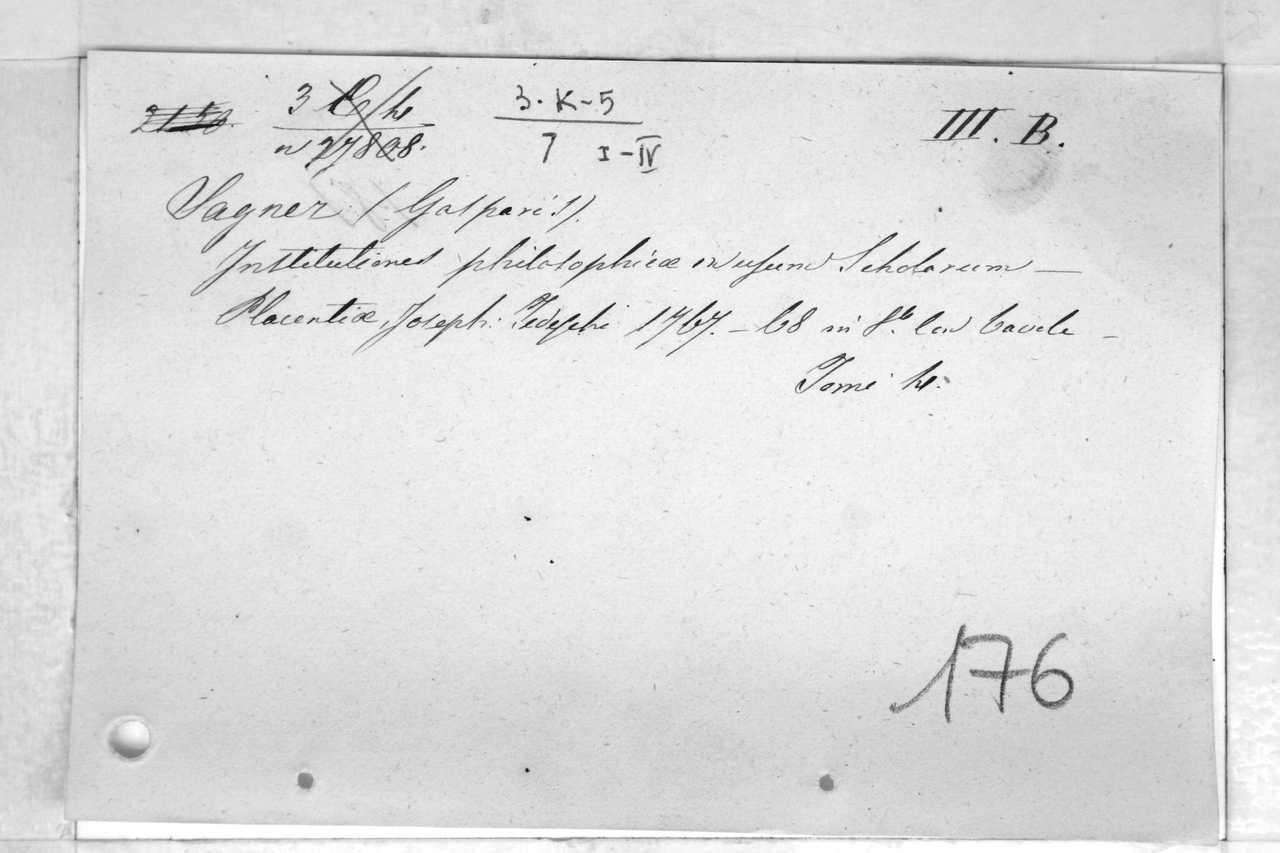 3. K-5
III. B.
7 I-IV
Sagner (Gasparis).
Institutiones philosophicæ in usum Scholarum —
Placentiæ, Joseph. Tedeschi 1767. – 68 in 8.º con tavole –
Tomi 4.
176